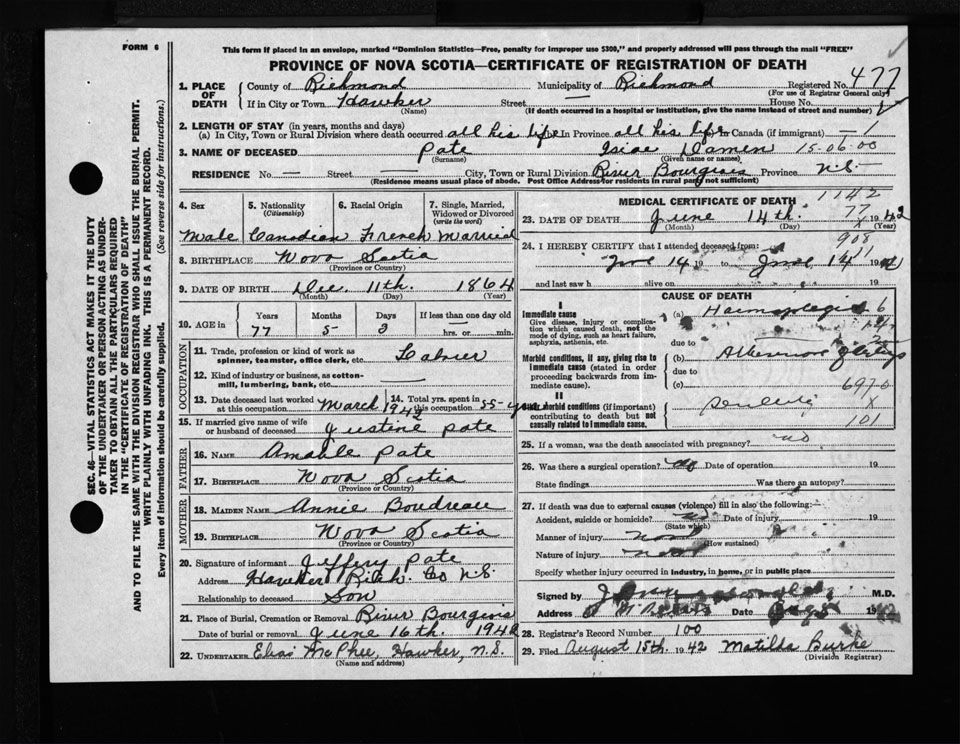 FORM 6
This form if placed in an envelope, marked "Dominion Statistics—Free, penalty for improper use $300," and properly addressed will pass through the mail "FREE"
PROVINCE OF NOVA SCOTIA—CERTIFICATE OF REGISTRATION OF DEATH
1. PLACE OF DEATH County of Richmond Municipality of Richmond Registered No. 477
(For use of Registrar General only)
If in City or Town Hawker Street — House No.
(Name) (If death occurred in a hospital or institution, give the name instead of street and number)
2. LENGTH OF STAY (in years, months and days)
(a) In City, Town or Rural Division where death occurred all his life In Province all his life Canada (if immigrant) —
3. NAME OF DECEASED Pate Isiae Damen 15-06-00
(Surname) (Given name or names)
RESIDENCE No. — Street — City, Town or Rural Division River Bourgeois Province N.S.
(Residence means usual place of abode. Post Office Address for residents in rural parts not sufficient)
4. Sex 5. Nationality (Citizenship) 6. Racial Origin 7. Single, Married, Widowed or Divorced (write the word)
Male Canadian French Married
8. BIRTHPLACE Nova Scotia
(Province or Country)
9. DATE OF BIRTH Dec. 11th. 1864
(Month) (Day) (Year)
10. AGE in Years Months Days If less than one day old
77 5 3 hrs. or min.
OCCUPATION
11. Trade, profession or kind of work as spinner, teamster, office clerk, etc.
12. Kind of industry or business, as cotton-mill, lumbering, bank, etc. —
13. Date deceased last worked at this occupation March 1942 14. Total yrs. spent in this occupation 55-yrs
15. If married give name of wife or husband of deceased Justine Pate
FATHER
16. NAME Amable Pate
17. BIRTHPLACE Nova Scotia
(Province or Country)
MOTHER
18. MAIDEN NAME Annie Boudreau
19. BIRTHPLACE Nova Scotia
(Province or Country)
20. Signature of informant Jeffery Pate
Address Hawker Rich. Co N.S.
Relationship to deceased Son
21. Place of Burial, Cremation or Removal River Bourgeois
Date of burial or removal June 16th. 1942
22. UNDERTAKER Elias McPhee, Hawker, N.S.
(Name and address)
MEDICAL CERTIFICATE OF DEATH
1142
77
23. DATE OF DEATH June 14th. 1942
(Month) (Day) (Year)
24. I HEREBY CERTIFY that I attended deceased from:
June 14 19 to June 14 19
and last saw h alive on 19
CAUSE OF DEATH
I
Immediate cause (a)
Give disease, injury or complication which caused death, not the mode of dying, such as heart failure, asphyxia, asthenia, etc.
due to
Morbid conditions, if any, giving rise to immediate cause (stated in order proceeding backwards from immediate cause). (b)
due to
(c) 697-0
II
Other morbid conditions (if important) contributing to death but not causally related to immediate cause.
101
25. If a woman, was the death associated with pregnancy? no
26. Was there a surgical operation? no Date of operation 19
State findings Was there an autopsy?
27. If death was due to external causes (violence) fill in also the following:—
Accident, suicide or homicide? Date of injury 19
(State which)
Manner of injury
(How sustained)
Nature of injury
Specify whether injury occurred in industry, in home, or in public place
Signed by M.D.
Address Date 1942
28. Registrar's Record Number 100
29. Filed August 15th. 1942 Matilda Burke
(Division Registrar)
SEC. 46—VITAL STATISTICS ACT MAKES IT THE DUTY
OF THE UNDERTAKER OR PERSON ACTING AS UNDER-
TAKER TO OBTAIN ALL THE PARTICULARS REQUIRED
IN THE "CERTIFICATE OF REGISTRATION OF DEATH"
AND TO FILE THE SAME WITH THE DIVISION REGISTRAR WHO SHALL ISSUE THE BURIAL PERMIT.
WRITE PLAINLY WITH UNFADING INK. THIS IS A PERMANENT RECORD.
Every item of information should be carefully supplied. (See reverse side for instructions.)